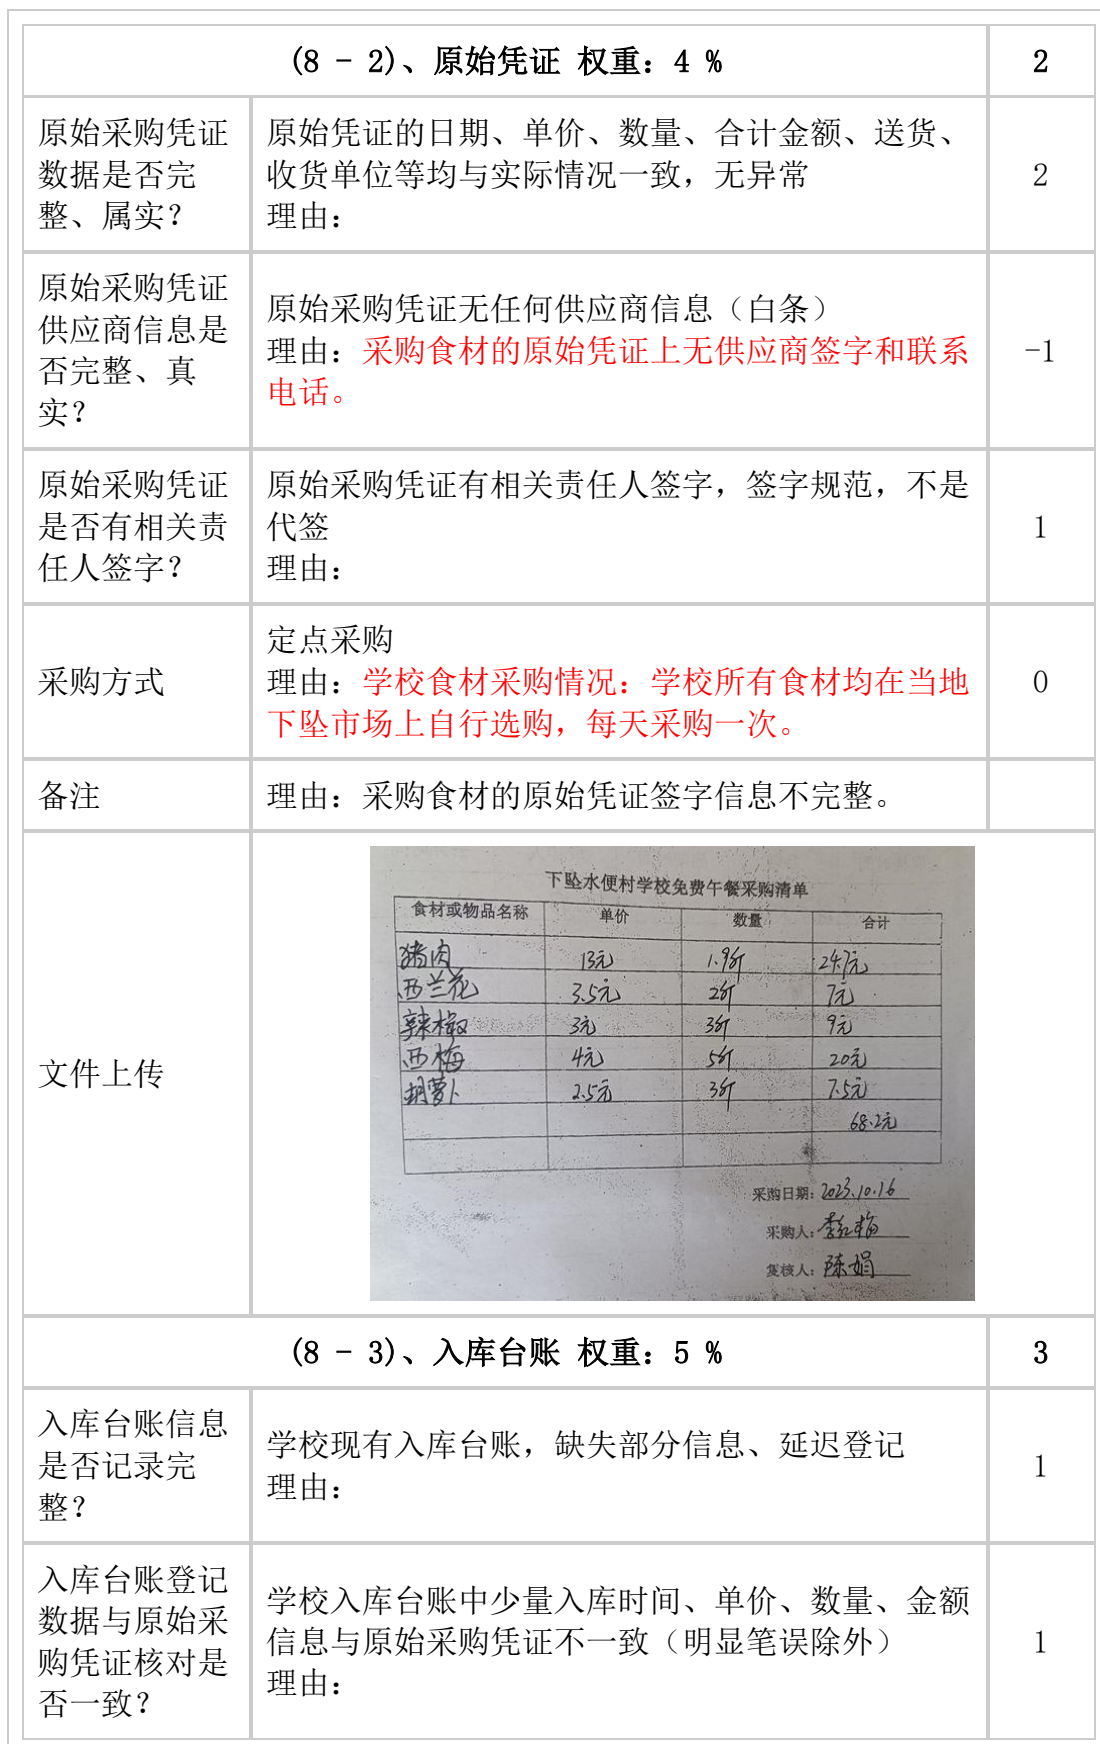 (8 - 2)、原始凭证 权重：4 % 2
原始采购凭证
数据是否完
整、属实？
原始凭证的日期、单价、数量、合计金额、送货、
收货单位等均与实际情况一致，无异常
理由：
2
原始采购凭证
供应商信息是
否完整、真
实？
原始采购凭证无任何供应商信息（白条）
理由：采购食材的原始凭证上无供应商签字和联系
电话。
-1
原始采购凭证
是否有相关责
任人签字？
原始采购凭证有相关责任人签字，签字规范，不是
代签
理由：
1
采购方式
定点采购
理由：学校食材采购情况：学校所有食材均在当地
下坠市场上自行选购，每天采购一次。
0
备注
理由：采购食材的原始凭证签字信息不完整。
文件上传
下坠水便村学校免费午餐采购清单
食材或物品名称 单价 数量 合计
猪肉 13元 1.9斤 24.7元
西兰花 3.5元 2斤 7元
辣椒 3元 3斤 9元
西梅 4元 5斤 20元
胡萝卜 2.5元 3斤 7.5元
68.2元
采购日期：2023.10.16
采购人：李红梅
复核人：陈娟
(8 - 3)、入库台账 权重：5 % 3
入库台账信息
是否记录完
整？
学校现有入库台账，缺失部分信息、延迟登记
理由：
1
入库台账登记
数据与原始采
购凭证核对是
否一致？
学校入库台账中少量入库时间、单价、数量、金额
信息与原始采购凭证不一致（明显笔误除外）
理由：
1